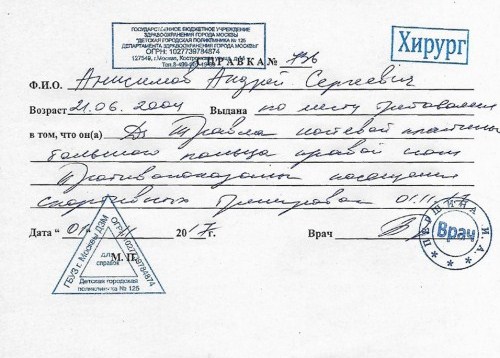 ГОСУДАРСТВЕННОЕ БЮДЖЕТНОЕ УЧРЕЖДЕНИЕ
ЗДРАВООХРАНЕНИЯ ГОРОДА МОСКВЫ
"ДЕТСКАЯ ГОРОДСКАЯ ПОЛИКЛИНИКА № 125
ДЕПАРТАМЕНТА ЗДРАВООХРАНЕНИЯ ГОРОДА МОСКВЫ"
ОГРН: 1027739784874
127549, г.Москва,
Хирург
СПРАВКА № 736
Ф.И.О. Анисимов Андрей Сергеевич
Возраст 21.06.2004 Выдана по месту требования
в том, что он(а) Ds Травма ногтевой пластины
большого пальца правой
Противопоказаны посещения
спортивных тренировок 01.11.17
Дата "01" 11 2017г. Врач
М.П.
ГБУЗ г. Москвы ДЗМ
ОГРН 1027739784874
для
справок
Детская городская
поликлиника № 125
ПЕРШИНА И.А.
Врач